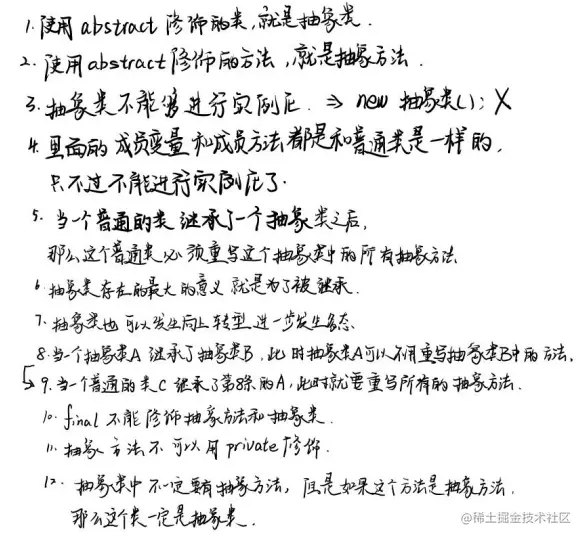 1. 使用abstract修饰的类,就是抽象类.
2. 使用abstract修饰的方法,就是抽象方法.
3. 抽象类不能够进行实例化. ⇒ new 抽象类(); X
4. 里面的成员变量和成员方法都是和普通类是一样的,
只不过不能进行实例化了.
5. 当一个普通的类继承了一个抽象类之后,
那么这个普通类必须重写这个抽象类中的所有抽象方法.
6. 抽象类存在的最大的意义就是为了被继承.
7. 抽象类也可以发生向上转型,进一步发生多态.
8. 当一个抽象类A继承了抽象类B,此时抽象类A可以不用重写抽象类B中的方法.
9. 当一个普通的类C继承了第8条的A,此时就要重写所有的抽象方法.
10. final不能修饰抽象方法和抽象类.
11. 抽象方法不可以用private修饰.
12. 抽象类中不一定要有抽象方法,但是如果这个方法是抽象方法,
那么这个类一定是抽象类.
@稀土掘金技术社区